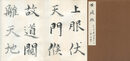 上服伏
天門候
故道闚
離天地